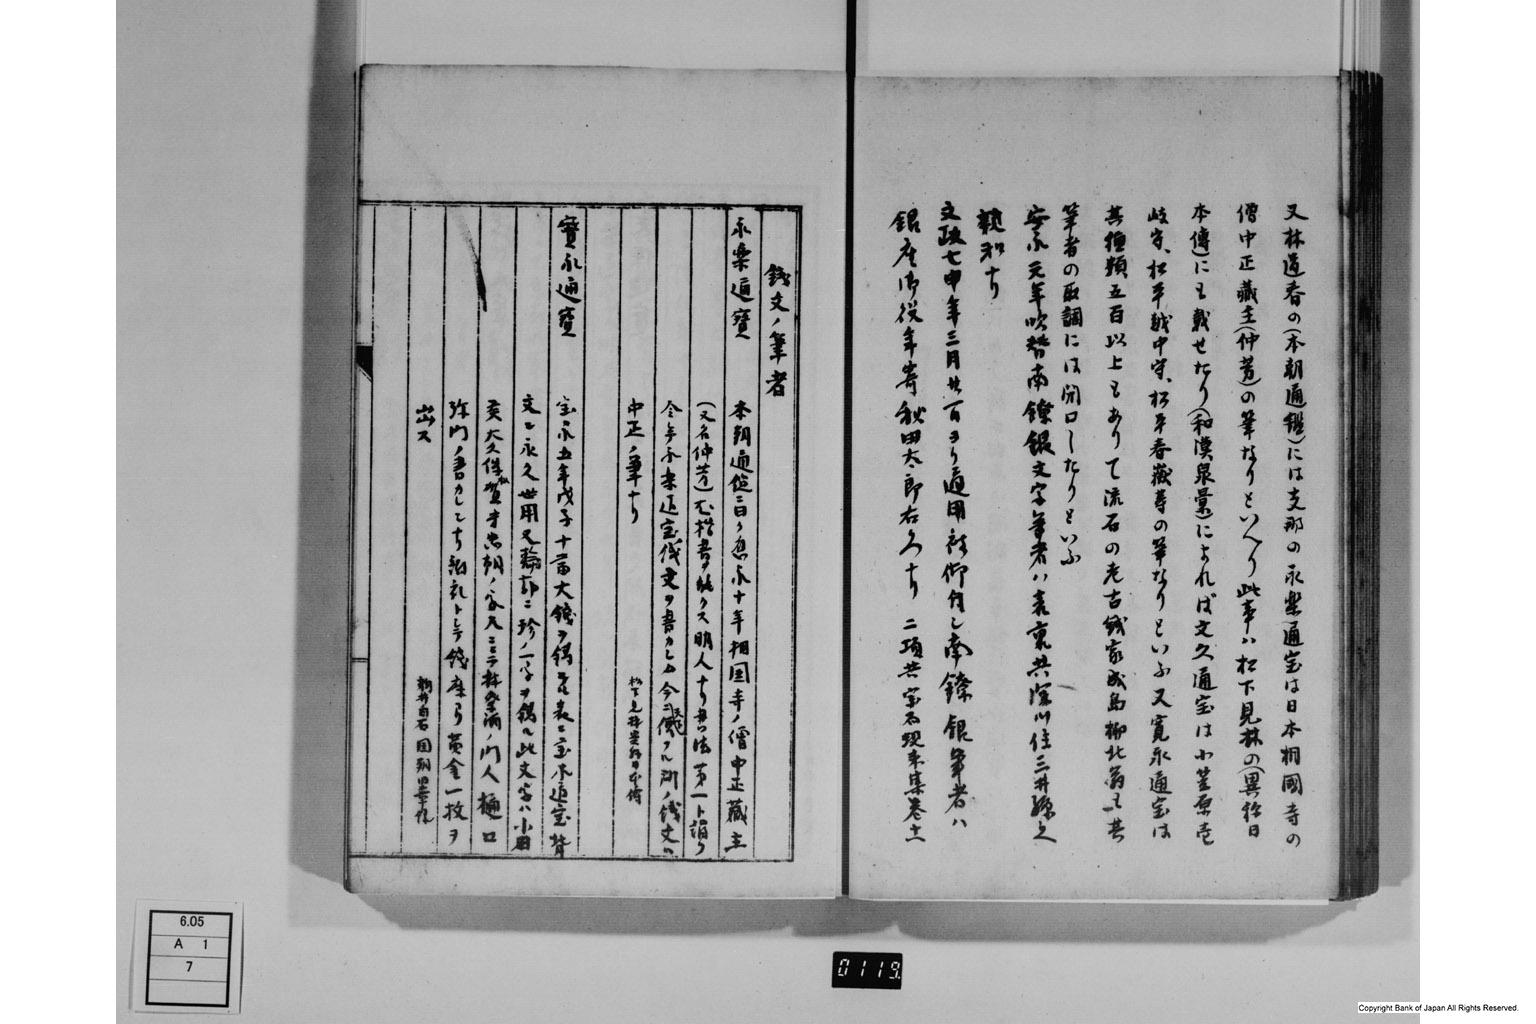 又林道春の(本朝通鑑)には支那の永楽通宝は日本相國寺の
僧中正藏主(仲芳)の筆なりといへり此事ハ松下見林の(異称日
本傳)にも載せたり(和漢泉彙)によれば文久通宝は小笠原壱
岐守、松平越中守、松平春嶽等の筆なりといふ又寛永通宝は
其種類五百以上もありて流石の老古銭家成島柳北翁も其
筆者の取調には閉口したりといふ
安永元年吹替南鐐銀文字筆者ハ表裏共深川住三井孫之
親和ナリ
文政七申年三月廿一日ヨリ通用被仰付シ南鐐銀筆者ハ
銀座御役年寄秋田太郎右久ナリ 二項共宗石現来集巻十一
錢文ノ筆者
永楽通寶
本朝通鑑ニ曰ク應永十年相国寺ノ僧中正藏主
(又名仲芳)尤楷書ヲ能クス明人ナリ書法第一ト謂ウ
今年永楽通宝銭文ヲ書カシム今ニ傳フル所ノ銭文ハ
中正ノ筆ナリ
松下見林異称日本傳
寳永通寳
宝永五年戊子十一月大錢ヲ鋳 表ニ宝永通宝背
文ニ永久世用又輪郭ニ珍ノ一字ヲ鋳ル此文字ハ小田
原大久保加賀守忠朝ノ家人ニシテ林祭酒ノ門人樋口
弥門ノ書カレシナリ 謝礼トシテ錢座ヨリ黄金一枚ヲ
出ス
新井白石